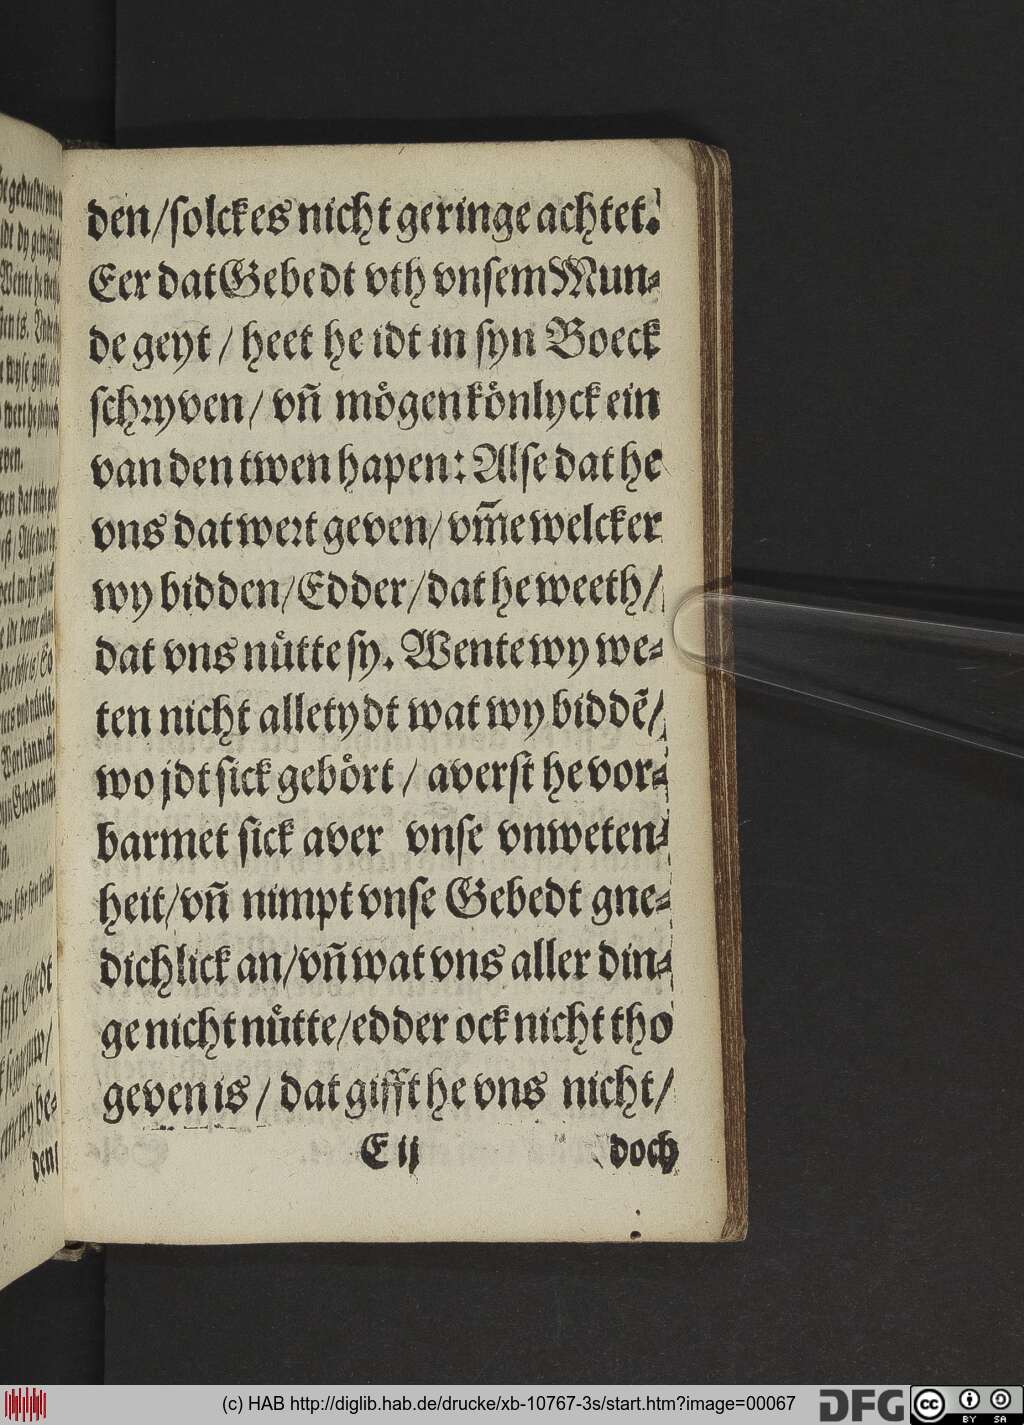 den/ ſolckes nicht geringe achtet.
Eer dat Gebedt vth vnſem Mun-
de geyt / heet he idt in ſyn Boeck
ſchꝛyven/ vñ mögen könlyck ein
van den twen hapen: Alſe dat he
vns dat weꝛt geven/ vm̃e welcker
wy bidden/ Edder/ dat he weeth/
dat vns nütte ſy. Wente wy we-
ten nicht alletydt wat wy biddẽ/
wo jdt ſick gebört / averſt he vor-
barmet ſick aver vnſe vnweten-
heit/ vñ nimpt vnſe Gebedt gne-
dichlick an/ vñ wat vns aller din-
ge nicht nütte/ edder ock nicht tho
geven is / dat gifft he vns nicht/
E ij doch
(c) HAB http://diglib.hab.de/drucke/xb-10767-3s/start.htm?image=00067
DFG
cc BY SA